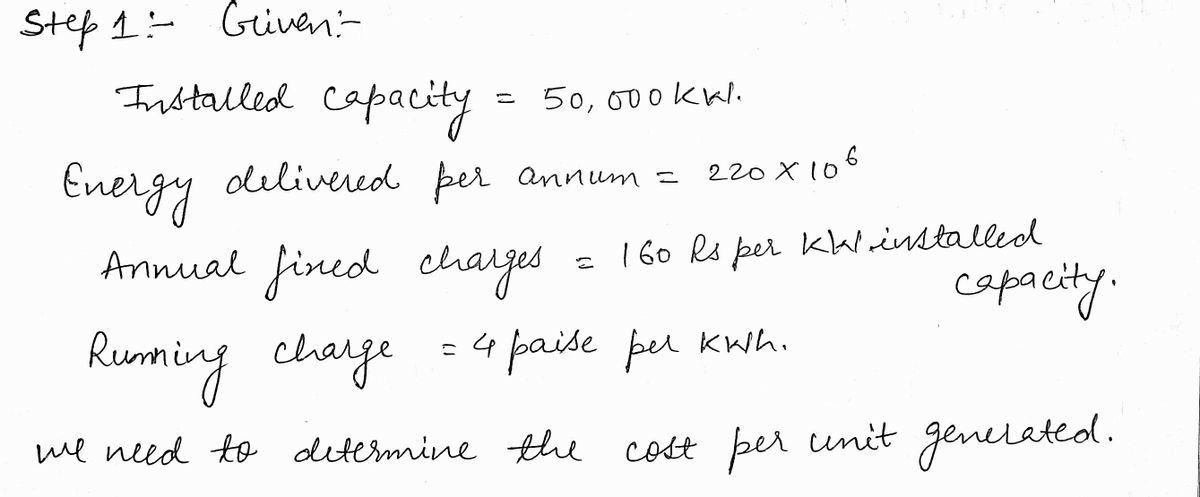 Step 1:- Given:-
Installed capacity = 50,000 kW.
Energy delivered per annum = 220 X 10⁶
Annual fined charges = 160 Rs per kW installed
capacity.
Running charge = 4 paise per kWh.
we need to determine the cost per unit generated.